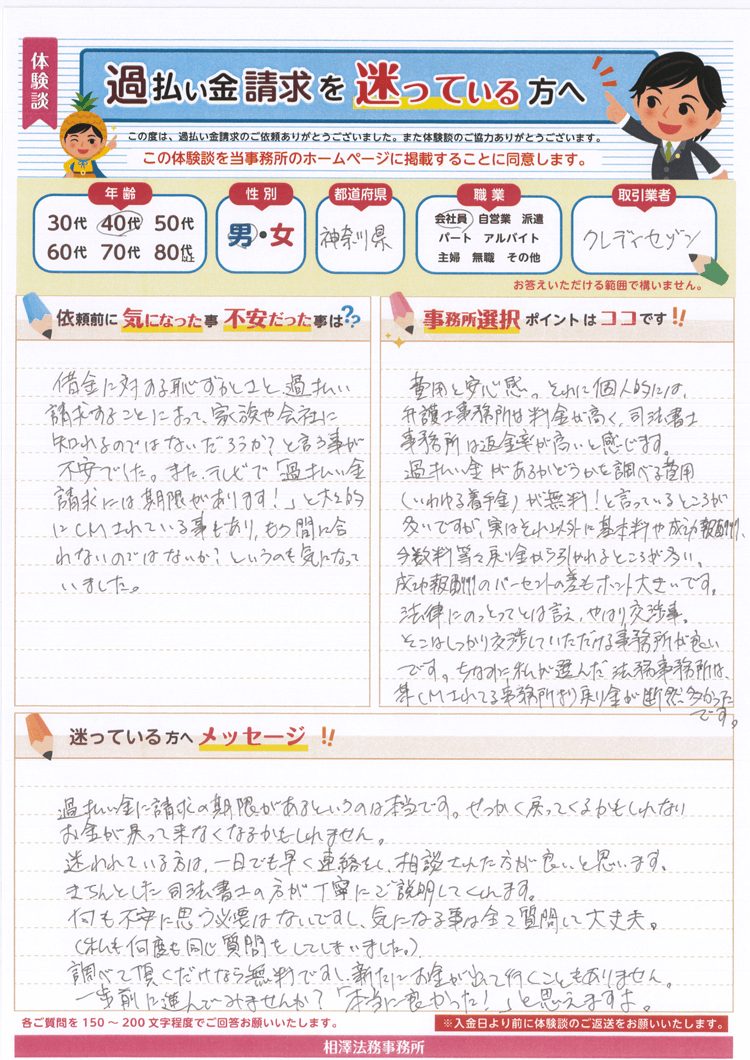 体験談
過払い金請求を迷っている方へ
この度は、過払い金請求のご依頼ありがとうございました。また体験談のご協力ありがとうございます。
この体験談を当事務所のホームページに掲載することに同意します。
年齢
30代 40代 50代
60代 70代 80代以上
性別
男・女
都道府県
神奈川県
職業
会社員 自営業 派遣
パート アルバイト
主婦 無職 その他
取引業者
クレディセゾン
お答えいただける範囲で構いません。
依頼前に気になった事不安だった事は??
借金に対する恥ずかしさと、過払い
請求することによって、家族や会社に
知れるのではないだろうか?と言う事が
不安でした。また、テレビで「過払い金
請求には期限があります!」と大々的
にCMされている事もあり、もう間に合
わないのではないか?というのも気になって
いました。
事務所選択ポイントはココです!!
費用と安心感。それに個人的には、
弁護士事務所は料金が高く、司法書士
事務所は返金率が高いと感じます。
過払い金があるかどうかを調べる費用
(いわゆる着手金)が無料!と言っているところが
多いですが、実はそれ以外に基本料や成功報酬、
手数料等々戻り金から引かれるところが多い。
成功報酬のパーセントの差もホント大きいです。
法律にのっとってとは言え、やはり交渉事。
そこはしっかり交渉していただける事務所が良い
です。ちなみに私が選んだ法務事務所は、
某CMされてる事務所より戻り金が断然多かった
です。
迷っている方へメッセージ!!
過払い金に請求の期限があるというのは本当です。せっかく戻ってくるかもしれない
お金が戻って来なくなるかもしれません。
迷われている方は、一日でも早く連絡をし、相談された方が良いと思います。
きちんとした司法書士の方が丁寧にご説明してくれます。
何も不安に思う必要はないですし、気になる事は全て質問して大丈夫。
(私も何度も同じ質問をしてしまいました。)
調べて頂くだけなら無料ですし、新たにお金が出て行くこともありません。
一歩前に進んでみませんか?「本当に良かった!」と思えますよ。
各ご質問を150~200文字程度でご回答お願いいたします。
※入金日より前に体験談のご返送をお願いいたします。
相澤法務事務所